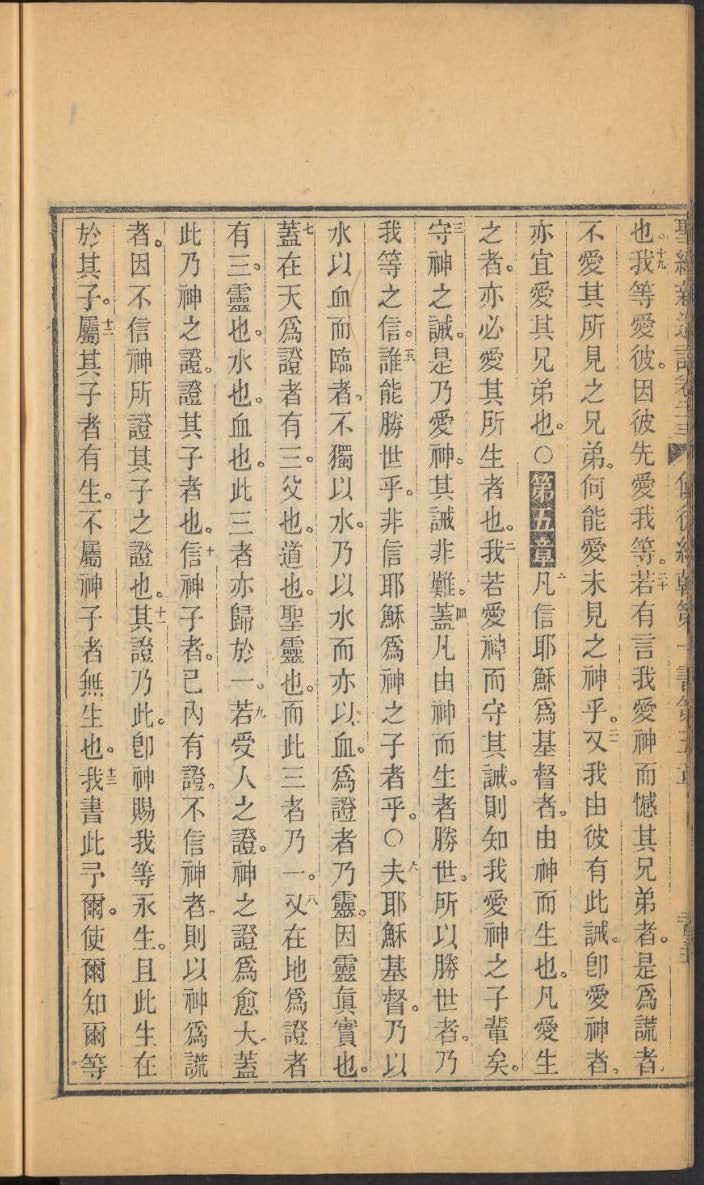 也。十九我等愛彼。因彼先愛我等。二十若有言我愛神而憾其兄弟者。是爲謊者
不愛其所見之兄弟。何能愛未見之神乎。二一又我由彼有此誡。卽愛神者、
亦宜愛其兄弟也。○第五章一凡信耶穌爲基督者。由神而生也。凡愛生
之者。亦必愛其所生者也。二我若愛神而守其誡。則知我愛神之子輩矣。
三守神之誡。是乃愛神。其誡非難。四蓋凡由神而生者勝世。所以勝世者。乃
我等之信。五誰能勝世乎。非信耶穌爲神之子者乎。○六夫耶穌基督。乃以
水以血而臨者、不獨以水。乃以水而亦以血。爲證者乃靈。因靈眞實也。
七蓋在天爲證者有三。父也。道也。聖靈也。而此三者乃一。八又在地爲證者
有三。靈也。水也。血也。此三者亦歸於一。九若受人之證。神之證爲愈大、蓋
此乃神之證。證其子者也。十信神子者。己內有證。不信神者、則以神爲謊
者。因不信神所證其子之證也。十一其證乃此。卽神賜我等永生。且此生在
於其子。十二屬其子者有生。不屬神子者無生也。十三我書此予爾。使爾知爾等